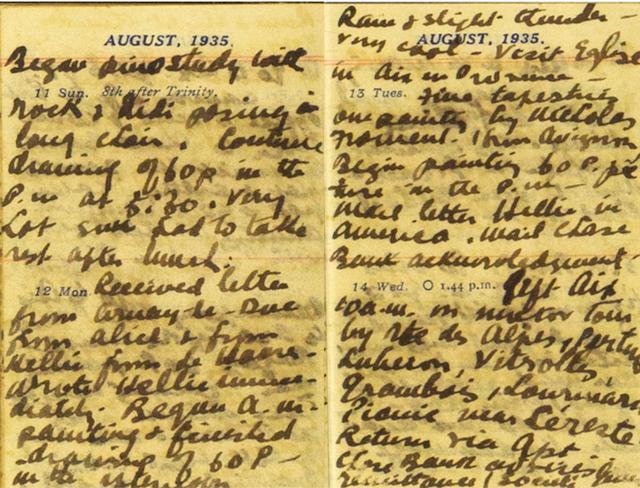 AUGUST, 1935.
Began study with
11 Sun. 8th after Trinity.
rock & Didi posing in
long chair. Continue
drawing of 60 P in the
P.m at 5:30. Very
hot sun had to take
rest after lunch.
12 Mon Received letter
from Arnay-le-Duc
from Alice & from
Hellie from de Havre-
Wrote Hellie imme-
diately. Began a.m-
painting & finished
drawing of 60 P—
in the
Rain & slight thunder—
very cool— Visit Eglise
AUGUST, 1935.
in Aix en Provence—
13 Tues. Fine tapestries
one painting by Nicholas
Froment. (from Avignon
Begin painting 60 P. pic
ture in the P.m—
Mail letter Hellie in
America. Mail Chase
Bank acknowledgment-
14 Wed. 1.44 p.m. Left Aix
10 a.m. on motor tour
by Rte des Alpes,
Luberon, Vitrolles
Grambois,
Picnic near Céreste
Return via Apt
Bank
remittance